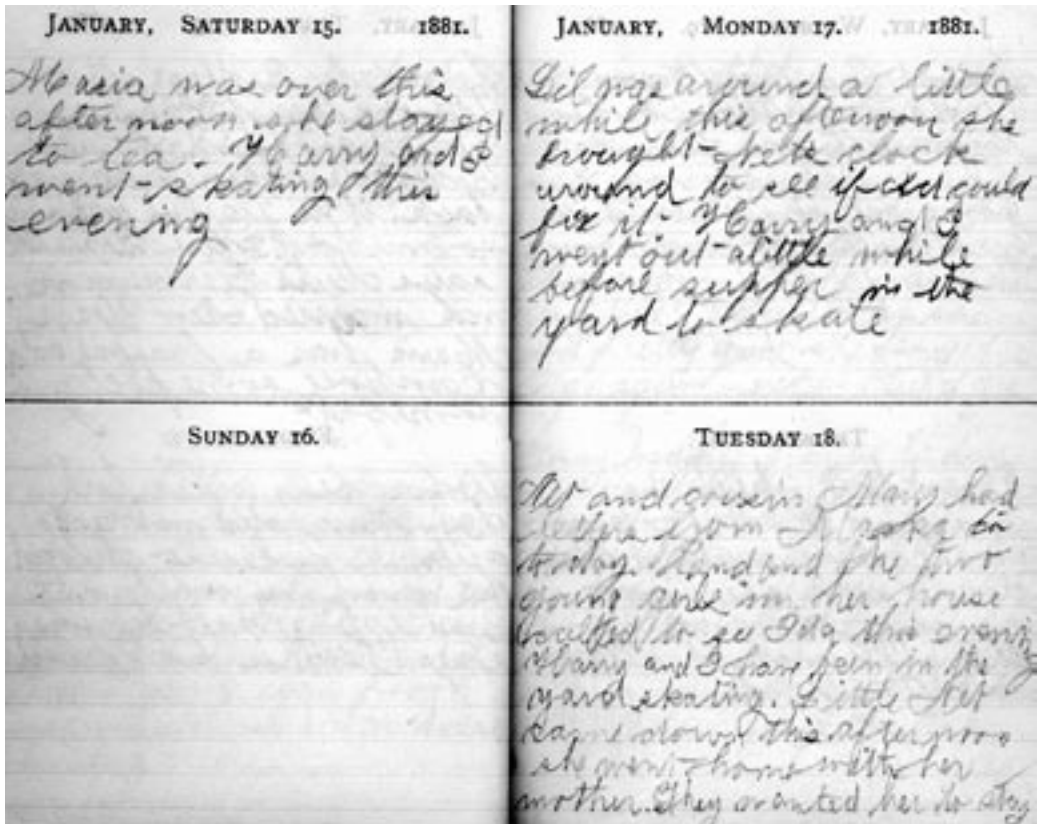 JANUARY, SATURDAY 15. 1881.
Maria was over this
after noon she stayed
to tea. Harry and I
went skating this
evening
SUNDAY 16.
JANUARY, MONDAY 17. 1881.
Lil was around a little
while this afternoon she
brought clock
around to see if could
fix it. Harry and I
went out a little while
before supper in the
yard to skate
TUESDAY 18.
Net and cousin Mary had
letters from
today. and the two
young in her house
called to see Ida this evening
Harry and I have been in the
yard skating. Little Net
came down this after noon
she went home with her
mother. They wanted her to stay